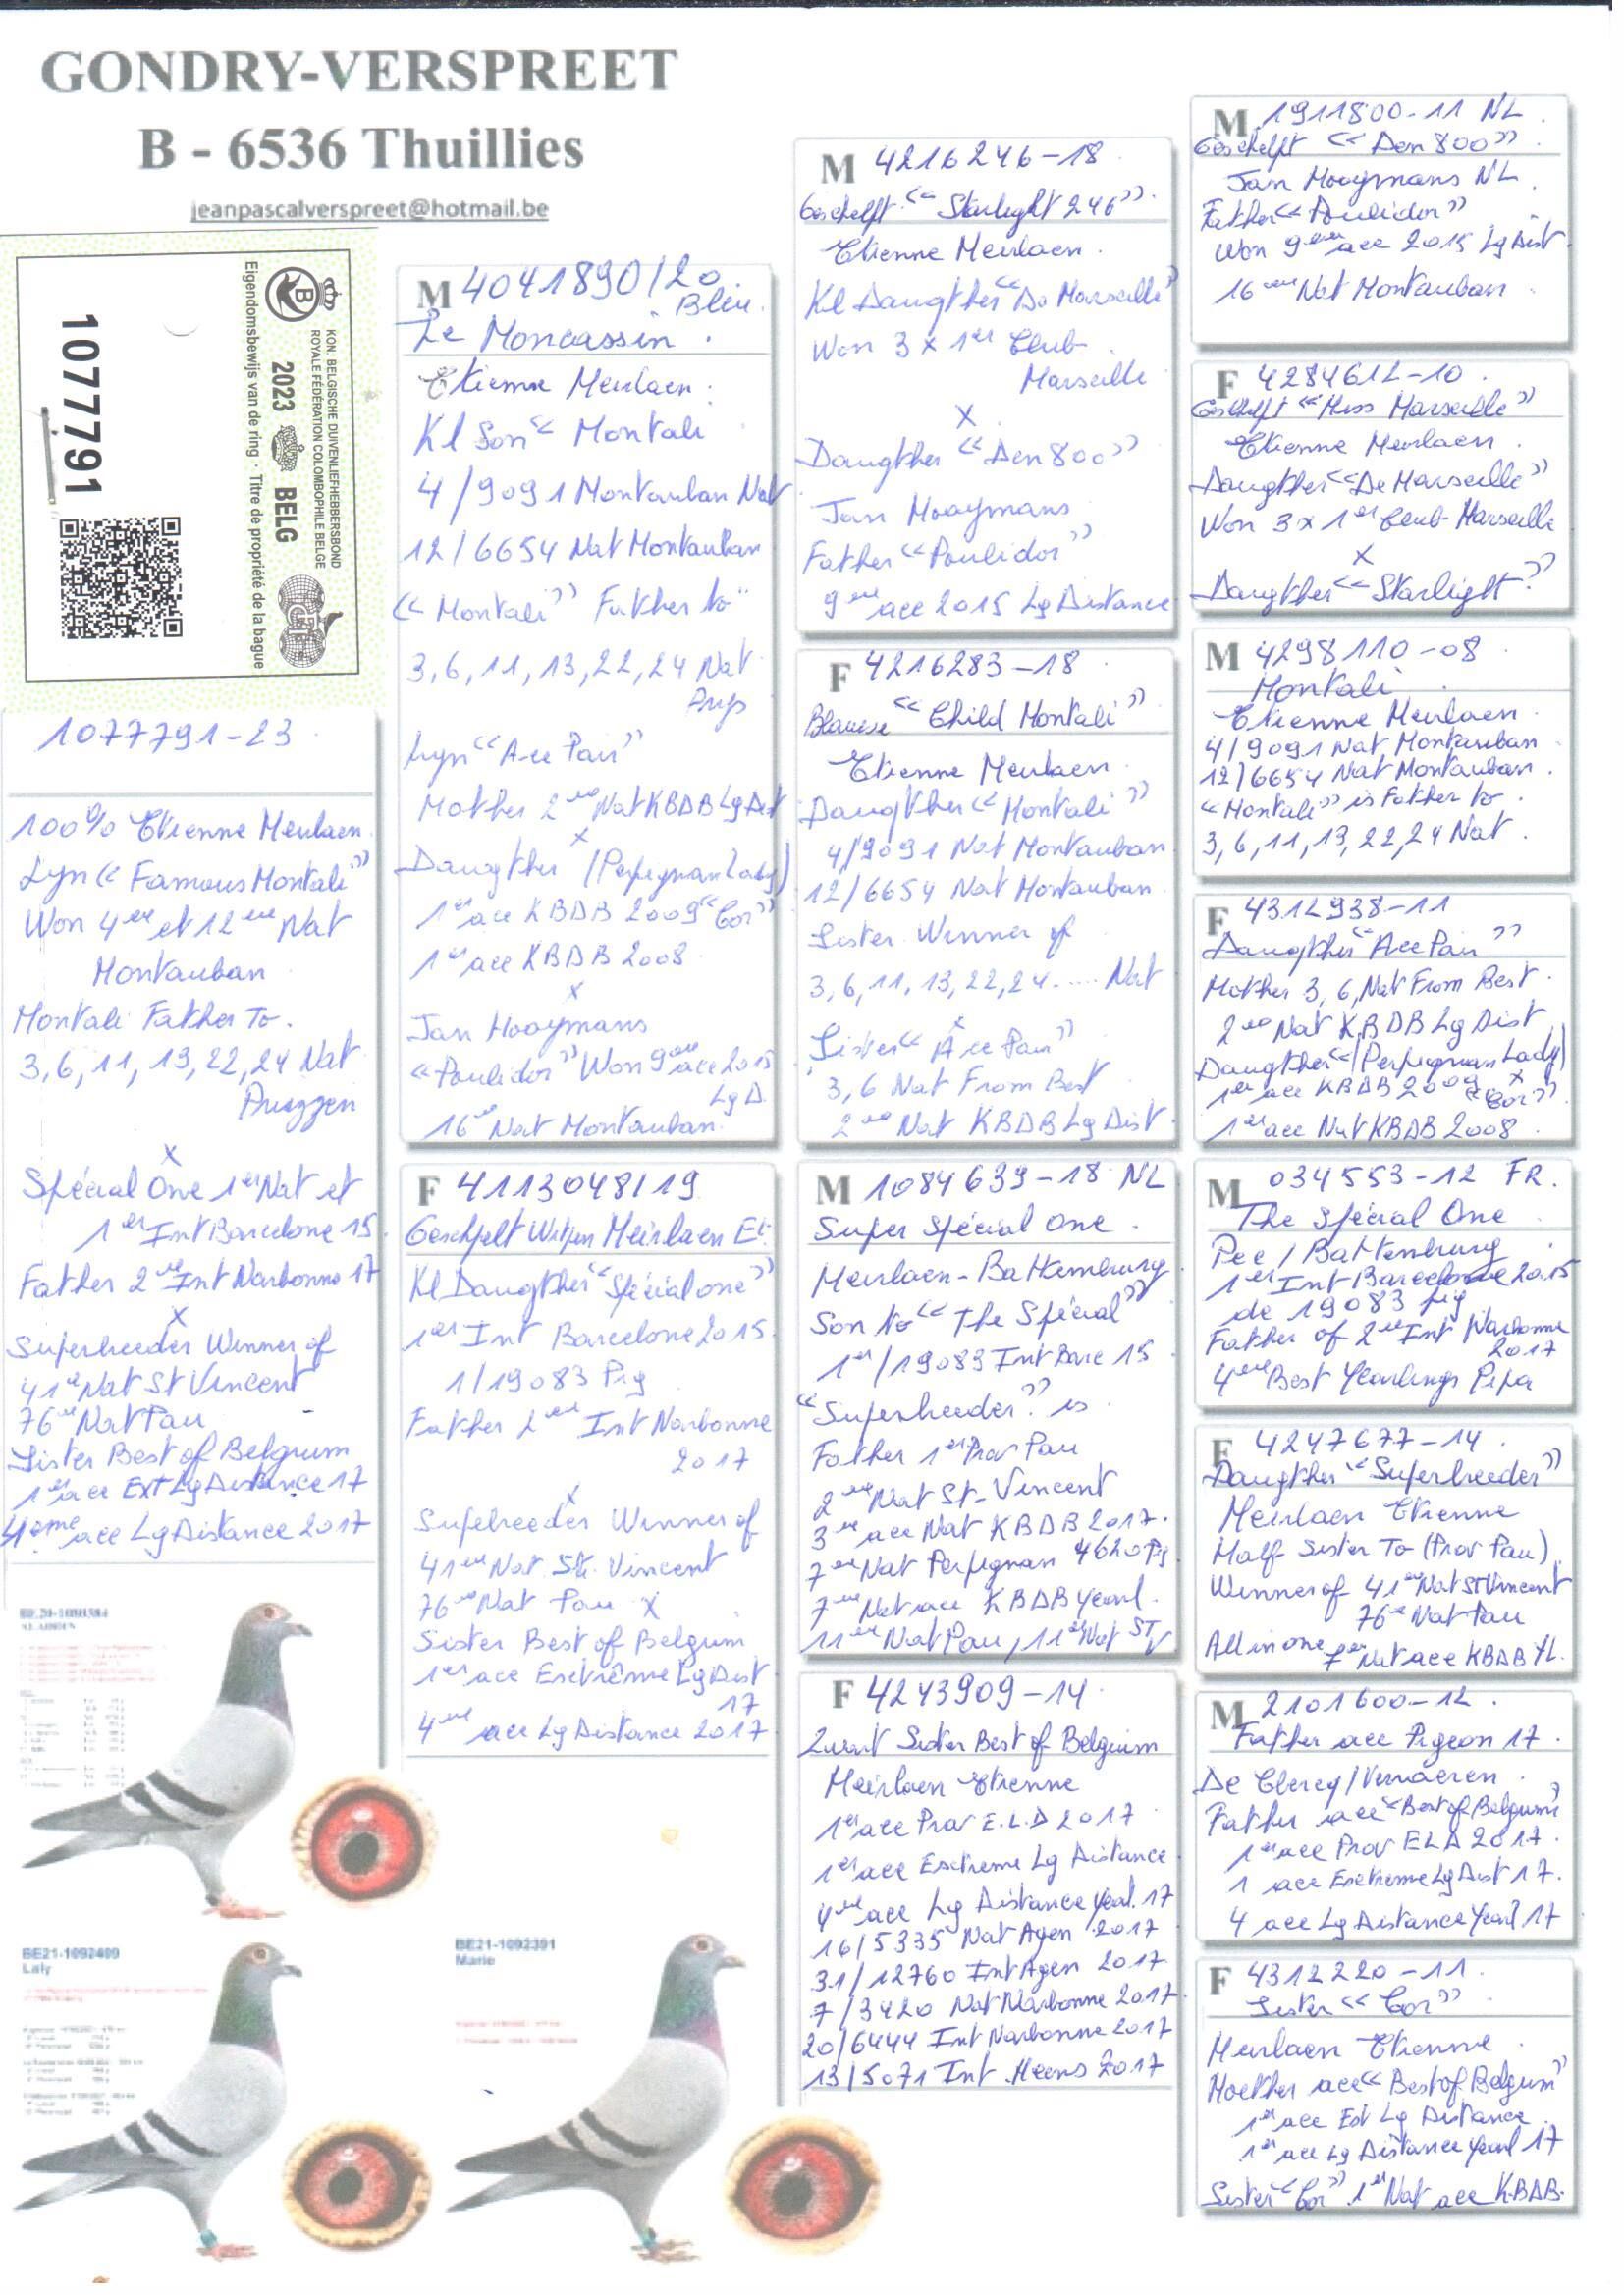 GONDRY-VERSPREET
B - 6536 Thuillies
jeanpascalverspreet@hotmail.be
KON. BELGISCHE DUIVENLIEFHEBBERSBOND
ROYALE FÉDÉRATION COLOMBOPHILE BELGE
2023 BELG
Eigendomsbewijs van de ring · Titre de propriété de la bague
1077791
1077791-23
100% Etienne Meirlaen
Lyn « Famous Montali »
Won 4eme et 12eme Nat
Montauban
Montali Father To.
3, 6, 11, 13, 22, 24 Nat
X
Spécial One 1er Nat et
1er Int Barcelone 15
Father 2eme Int Narbonne 17
X
Superbreeder Winner of
41e Nat St Vincent
76eme Nat Pau
Sister Best of Belgium
1er ace Ext Lg Distance 17
4eme ace Lg Distance 2017
M 4041890/20
Bleu
Le Moncassin.
Etienne Meirlaen.
Kl Son « Montali
4/9091 Montauban Nat
12/6654 Nat Montauban
« Montali » Father to
3, 6, 11, 13, 22, 24 Nat
Lyn « Ace Pair »
Mother 2eme Nat KBDB Lg Dist
X
Daugther (Perpignan Lady)
1er ace KBDB 2009 "Cor"
1er ace KBDB 2008
X
Jan Hooymans
« Poulidor » Won 9eme ace 2015
Lg D.
16e Nat Montauban
F 4113048/19
Geschpelt Witpen Meirlaen Et.
Kl Daugther « Spécial one »
1er Int Barcelone 2015
1/19083 Pig
Father 2eme Int Narbonne
2017
X
Supebreeder Winner of
41eme Nat St. Vincent
76eme Nat Pau X
Sister Best of Belgium
1er ace Exctrême Lg Dist
17
4eme ace Lg Distance 2017
M 4216246-18
Geschelft « Starlight 246 ».
Etienne Meirlaen.
Kl Daugther « De Marseille »
Won 3 x 1er Club
Marseille
X
Daugther « Den 800 »
Jan Hooymans
Father « Poulidor »
9eme ace 2015 Lg Distance
F 4216283-18
Blauwe « Child Montali »
Etienne Meirlaen
Daugther « Montali »
4/9091 Nat Montauban
12/6654 Nat Montauban
Sister Winner of
3, 6, 11, 13, 22, 24..... Nat
X
Sister « Ace Pair »
3, 6 Nat From Best
2eme Nat KBDB Lg Dist.
M 1084639-18 NL
Super Spécial One.
Meirlaen-Battenburg
Son to « The Spécial »
1er/19083 Int Barc 15
"Superbreeder" is
Father 1er Prov Pau
2eme Nat St-Vincent
3eme ace Nat KBDB 2017.
7eme Nat Perpignan 4620 Pg
7eme Nat ace KBDB Yearl.
11er Nat Pau, 11er Nat ST V
F 4243909-14
Zwart Sister Best of Belgium
Meirlaen Etienne
1er ace Prov E.L.D 2017
1er ace Exctreme Lg Distance
4eme ace Lg Distance Yearl. 17
16/5335 Nat Agen 2017
31/12760 Int Agen 2017
7/3420 Nat Narbonne 2017
20/6444 Int Narbonne 2017
13/5071 Int Heens 2017
M 1911800-11 NL.
Geschelft « Den 800 ».
Jan Hooymans NL.
Father « Poulidor »
Won 9eme ace 2015 Lg Dist.
16eme Nat Montauban
F 4284612-10.
Geschelft « Miss Marseille »
Etienne Meirlaen.
Daugther « De Marseille »
Won 3 x 1er Club Marseille
X
Daugther « Starlight »
M 4298110-08
Montali.
Etienne Meirlaen.
4/9091 Nat Montauban
12/6654 Nat Montauban.
« Montali » is Father to.
3, 6, 11, 13, 22, 24 Nat.
F 4312938-11
Daugther "Ace Pair"
Mother 3, 6, Nat From Best.
2eme Nat KBDB Lg Dist
Daugther « (Perpignan Lady)
1er ace KBDB 2009 X
"Cor"
1er ace Nat KBDB 2008
M 034553-12 FR.
The Spécial One
Pee / Battenburg
1er Int Barcelone 2015
de 19083 pig
Father of 2eme Int Narbonne
2017
4eme Best Yearlings Pipa
F 4247677-14
Daugther « Superbreeder »
Meirlaen Etienne
Half Sister To (Prov Pau)
Winner of 41eme Nat St Vincent
76e Nat Pau
All in one 7er Nat ace KBDB YL.
M 2101600-12.
Father ace Pigeon 17.
De Clercq / Vernaeren.
Father ace « Best of Belgium »
1er ace Prov ELD 2017.
1 ace Exctreme Lg Dist 17.
4 ace Lg Distance Yearl 17
F 4312220-11.
Sister « Cor »
Meirlaen Etienne.
Moether ace « Best of Belgium »
1er ace Ext Lg Distance
1er ace Lg Distance Yearl 17
Sister « Cor » 1er Nat ace KBDB.
BE20-1080384
BE21-1092409
Laly
BE21-1092391
Marie